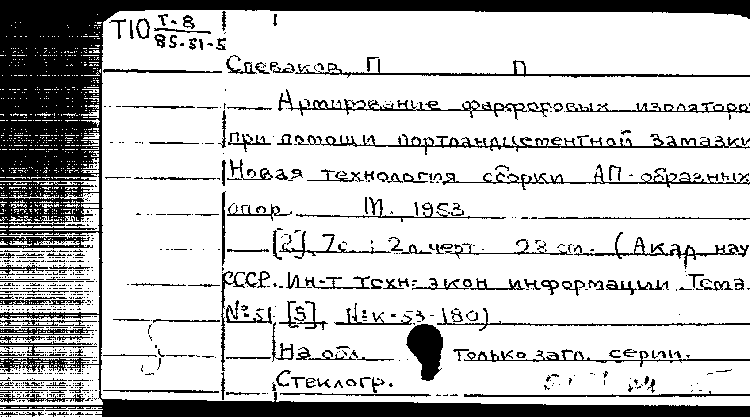 Т10 Т-8
85-51-5
Спеваков, П П
Армирование фарфоровых изоляторов
при помощи портландцементной замазки
Новая технология сборки АП-образных
опор. М., 1953
[2], 7с.; 2 л. черт. 28 см. (Акад. нау
СССР. Ин-т техн-экон информации. Тема
№51 [5], №к-53-180)
На обл. только загл. серии.
Стеклогр.